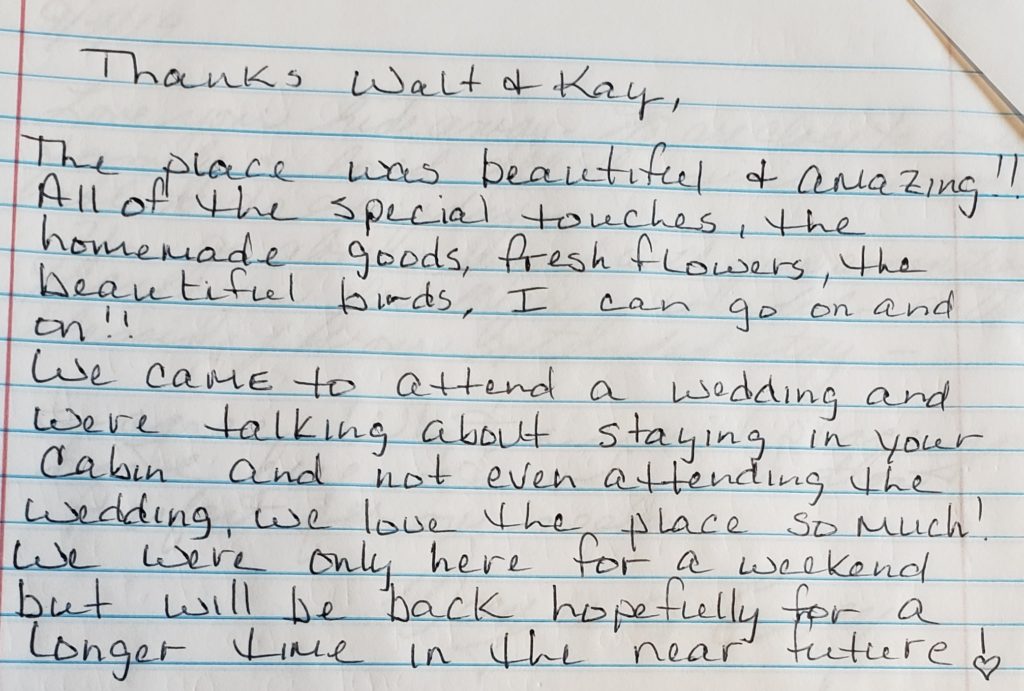 Thanks Walt & Kay,
The place was beautiful & amazing!!
All of the special touches, the
homemade goods, fresh flowers, the
beautiful birds, I can go on and
on!!
We came to attend a wedding and
were talking about staying in your
Cabin and not even attending the
wedding, we love the place so much!
We were only here for a weekend
but will be back hopefully for a
longer time in the near future!